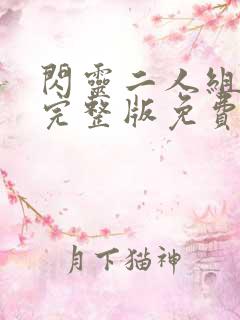 閃靈二人組
完整版免費
月下猫神